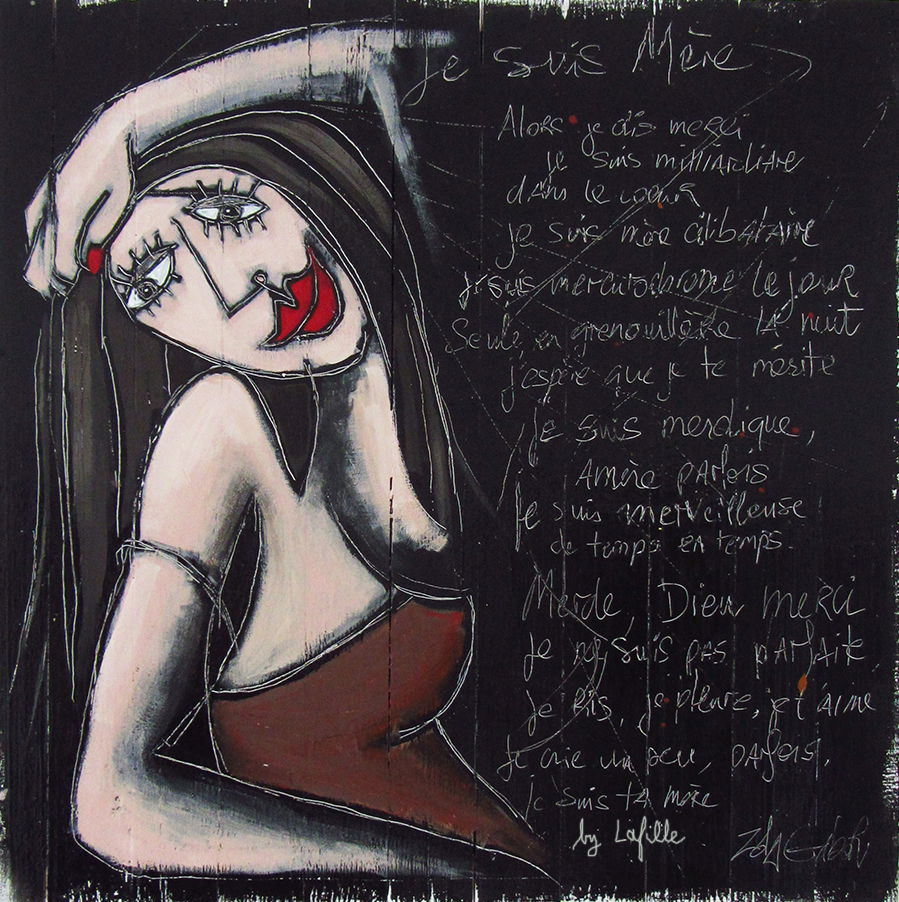 Je suis Mère
Alors je dis merci
je suis milliardiaire
dans le coeur
je suis mère célibataire
je suis mercurochrome le jour
Seule en grenouillère la nuit
j'espère que je te mérite
Je suis merdique,
Amère parfois
Je suis merveilleuse
de temps en temps.
Merde, Dieu merci
je ne suis pas parfaite
je ris, je pleure, je t'aime
Je crie un peu, parfois,
je suis ta mère
by Lafille